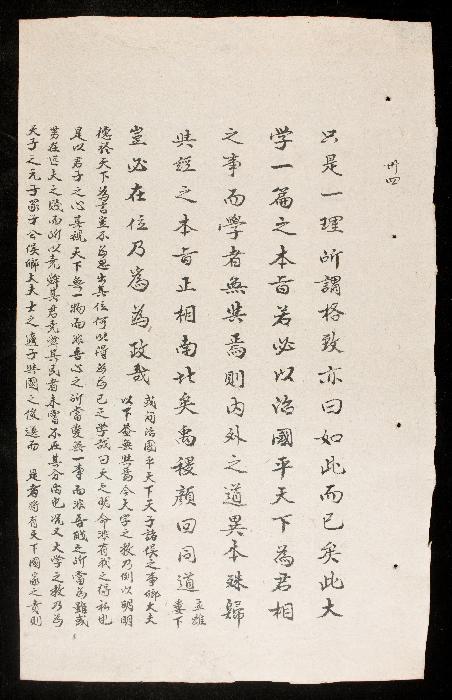 卅四
只是一理所謂格致亦曰如此而已矣此大
学一篇之本旨若必以治國平天下為君相
之事而學者無與焉則内外之道異本殊歸
與經之本旨正相南北矣禹稷顏回同道
孟離
婁下
豈必在位乃為為政哉
或问治國平天下天子諸侯之事卿大夫
以下蓋無與焉今大学之教乃例以明明
德於天下為言豈不為思出其位何以得為為己之学哉曰天之明命非有我之得私也
是以君子之心其視天下無一物而非吾心之所當愛無一事而非吾職之所當為雖或
势在匹夫之賤而所以堯舜其君堯舜其民者未嘗不在其分内也况又大学之教乃為
天子之元子冢子公侯卿大夫士之適子與國之俊選而 是者将有天下國家之責則